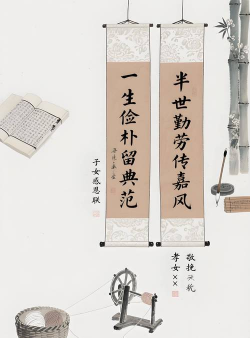 半世勤劳传嘉风
一生俭朴留典范
子女感恩联
敬挽
孝女××